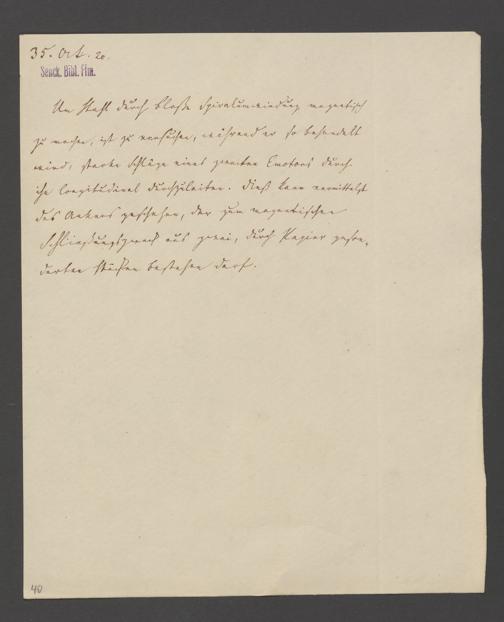 35. Oct. 20.
Senck. Bibl. Ffm.
Um Stahl durch bloße Spiralumwindung magnetisch
zu machen, ist zu versuchen, während er so behandelt
wird, starke Schläge eines zweiten Emotors durch
ihn longitudinal durchzuleiten. Dieß kann vermittelst
des Ankers geschehen, der zum magnetischen
aus zwei, durch Papier geson-
derten Stücken bestehen darf.
40